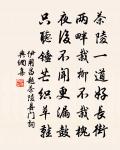 茶陵一道好長街
兩畔栽柳不栽槐
夜後不聞更漏鼓
只聽錘芒織草鞋
伊用昌題茶陵縣門詞